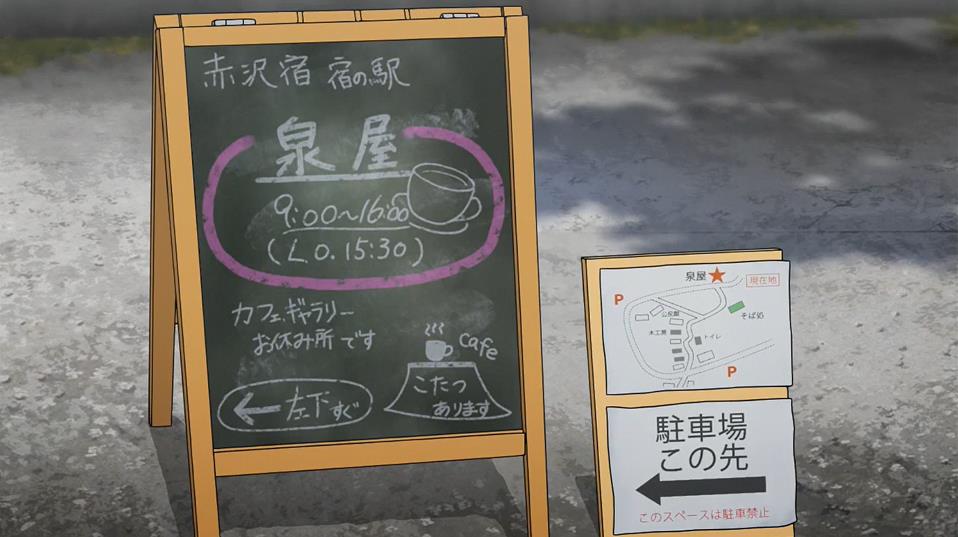 赤沢宿 宿の駅
泉屋
9:00〜16:00
(L.O.15:30)
カフェ、ギャラリー
お休み所です
cafe
こたつ
あります
← 左下すぐ
泉屋 ★
現在地
P
公民館
そば処
木工房
トイレ
P
駐車場
この先
←
このスペースは駐車禁止